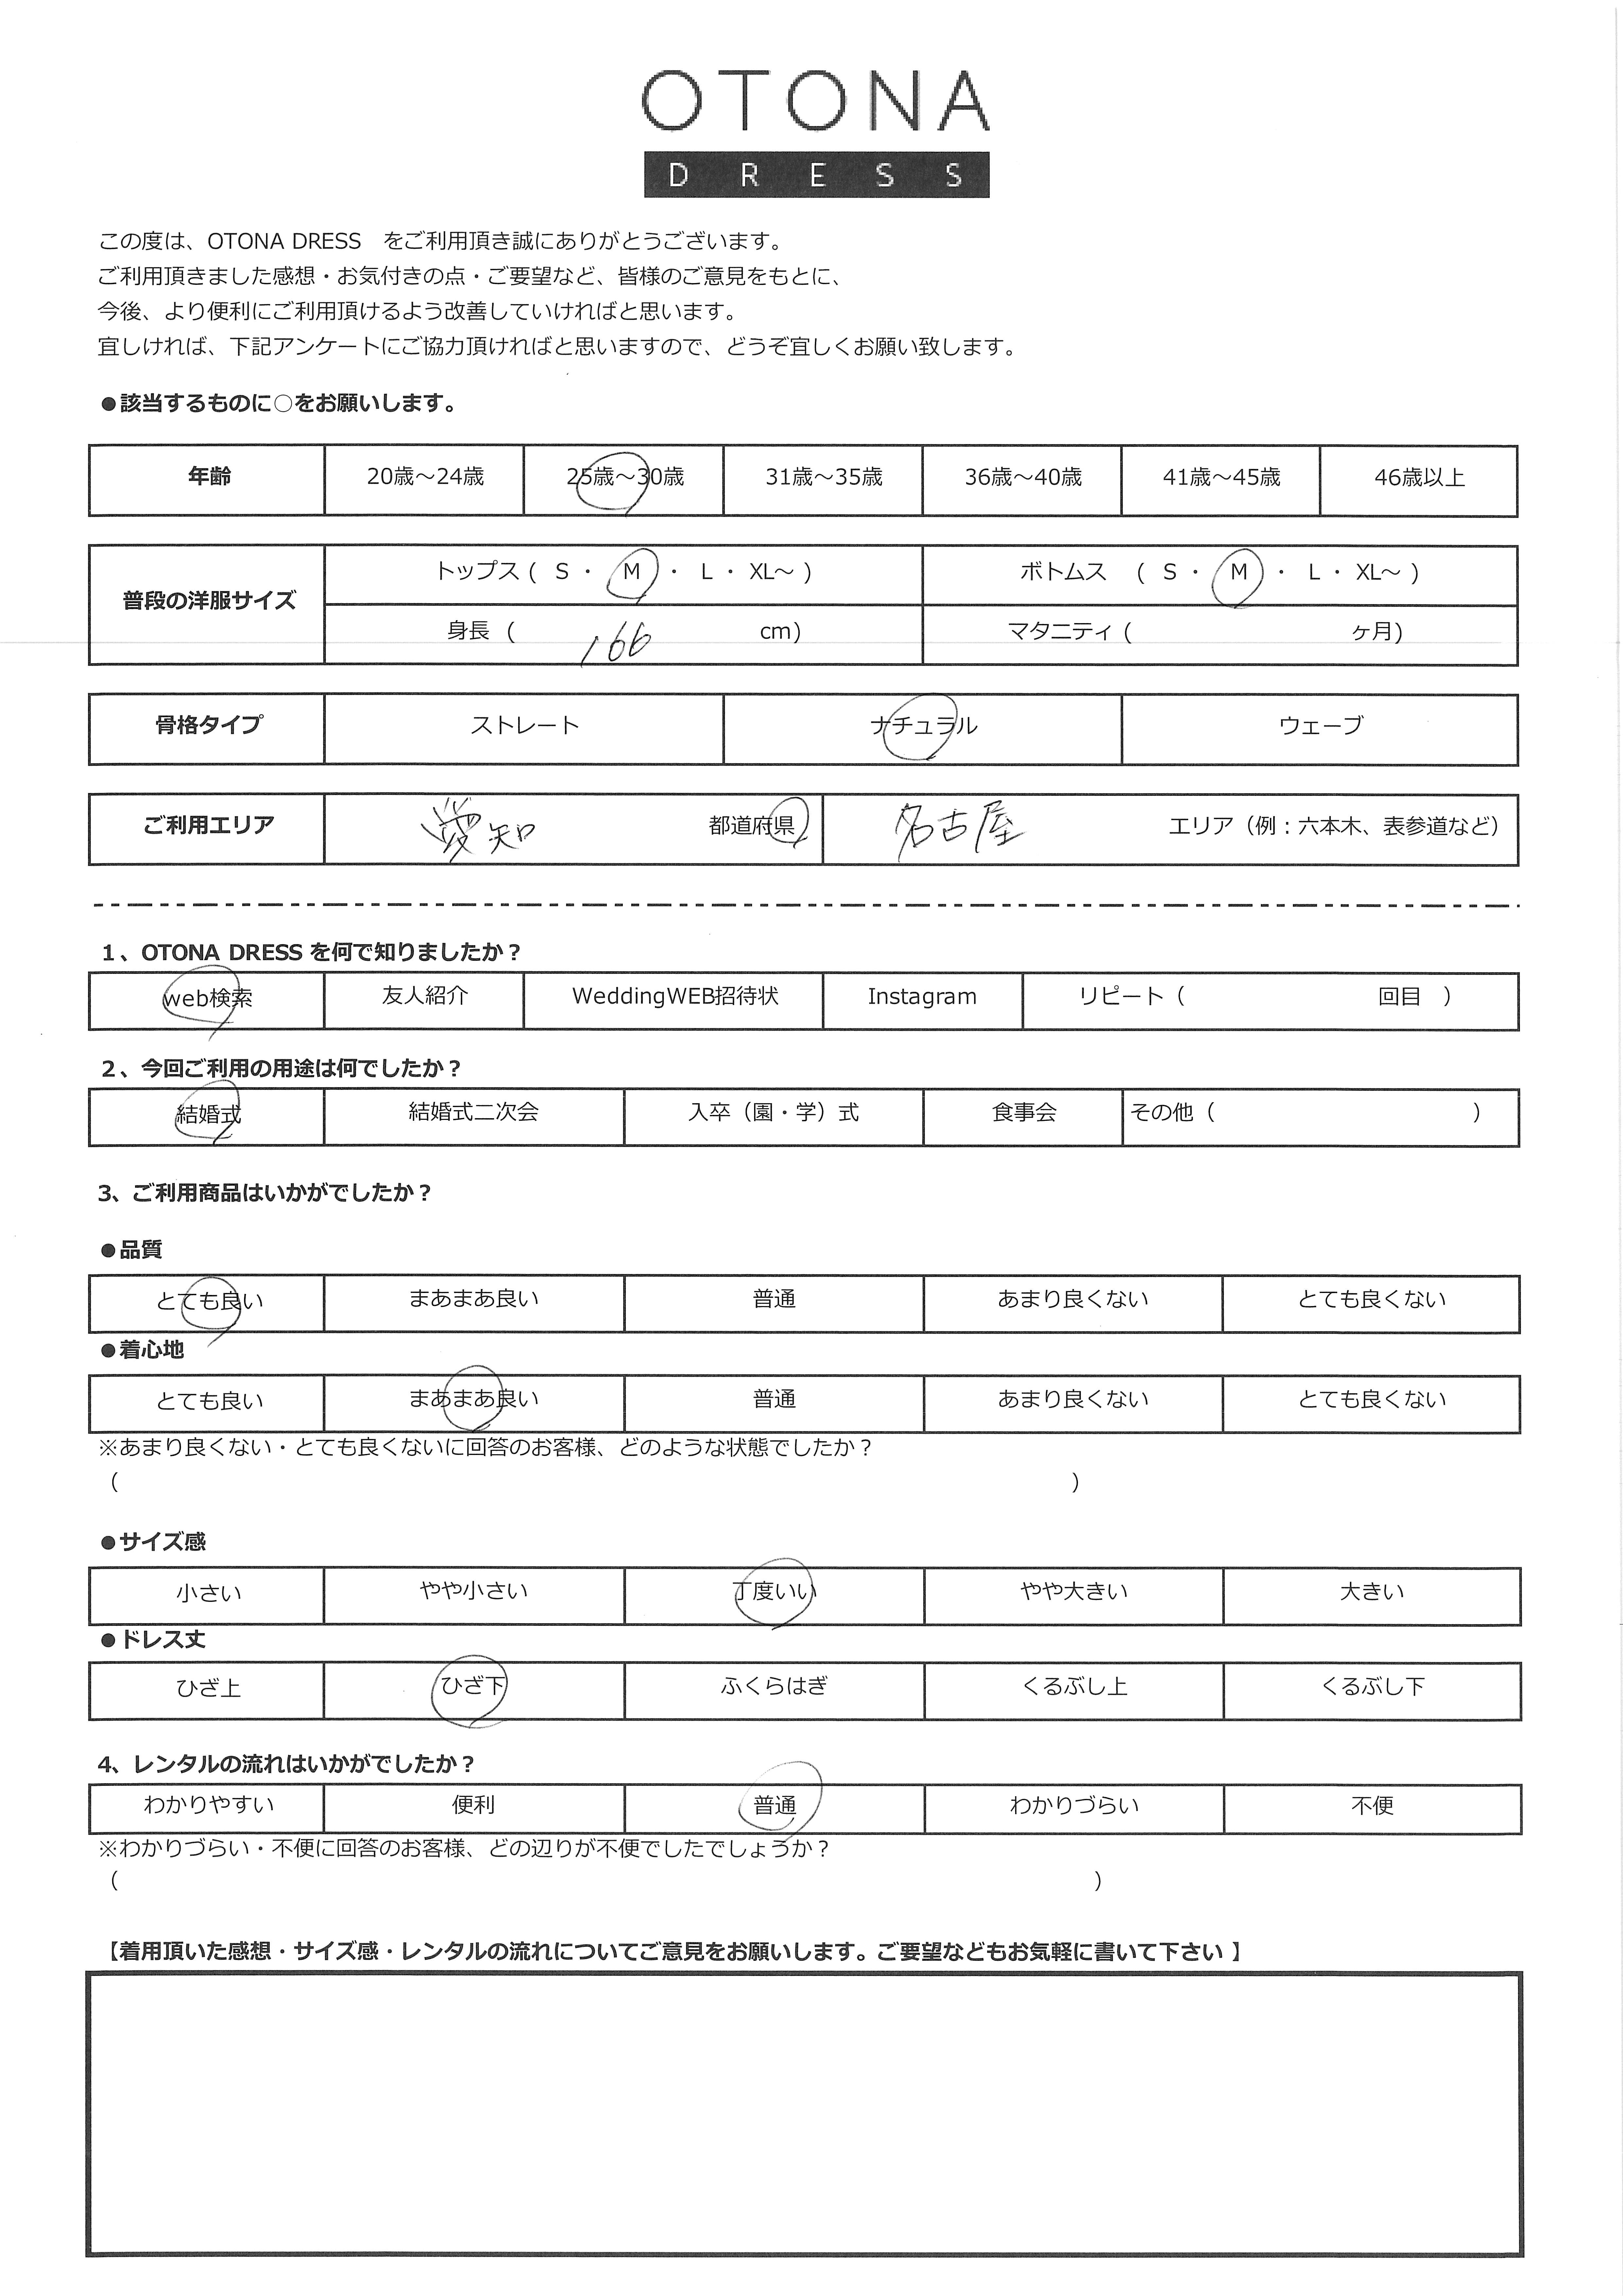 OTONA
DRESS
この度は、OTONA DRESS　をご利用頂き誠にありがとうございます。
ご利用頂きました感想・お気付きの点・ご要望など、皆様のご意見をもとに、
今後、より便利にご利用頂けるよう改善していければと思います。
宜しければ、下記アンケートにご協力頂ければと思いますので、どうぞ宜しくお願い致します。
●該当するものに○をお願いします。
年齢 20歳～24歳 25歳～30歳 31歳～35歳 36歳～40歳 41歳～45歳 46歳以上
普段の洋服サイズ トップス ( S ・ M ・ L ・ XL～ ) ボトムス ( S ・ M ・ L ・ XL～ )
身長 ( 166 cm) マタニティ ( ヶ月)
骨格タイプ ストレート ナチュラル ウェーブ
ご利用エリア 愛知 都道府県 名古屋 エリア（例：六本木、表参道など）
1、OTONA DRESS を何で知りましたか？
web検索 友人紹介 WeddingWEB招待状 Instagram リピート（ 回目 ）
2、今回ご利用の用途は何でしたか？
結婚式 結婚式二次会 入卒（園・学）式 食事会 その他（ ）
3、ご利用商品はいかがでしたか？
●品質
とても良い まあまあ良い 普通 あまり良くない とても良くない
●着心地
とても良い まあまあ良い 普通 あまり良くない とても良くない
※あまり良くない・とても良くないに回答のお客様、どのような状態でしたか？
（ ）
●サイズ感
小さい やや小さい 丁度いい やや大きい 大きい
●ドレス丈
ひざ上 ひざ下 ふくらはぎ くるぶし上 くるぶし下
4、レンタルの流れはいかがでしたか？
わかりやすい 便利 普通 わかりづらい 不便
※わかりづらい・不便に回答のお客様、どの辺りが不便でしたでしょうか？
（ ）
【着用頂いた感想・サイズ感・レンタルの流れについてご意見をお願いします。ご要望などもお気軽に書いて下さい 】